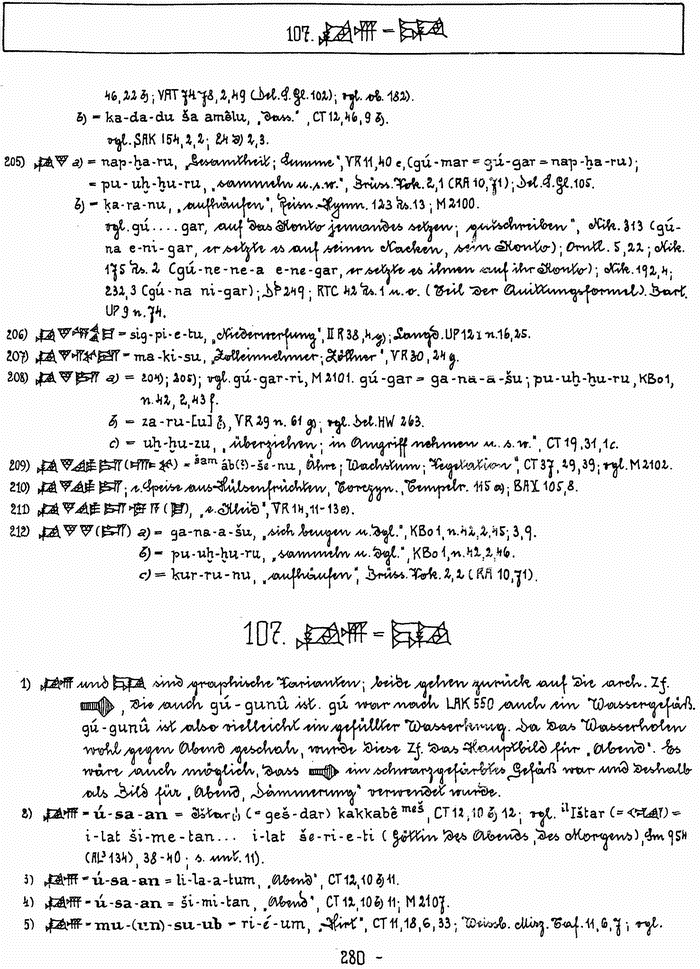 107. 𒄘𒉣 =
46,22 b; VAT 7478, 2,49 (Del. S. Gl. 102); vgl. ob. 182).
b) = ka-da-du ša amêlu, „dass.", CT 12, 46, 9 b.
vgl. SAK 154, 2, 2; 2, 3.
205) a) = nap-ḫa-ru, „Gesamtheit; Summe", VR 11, 40 e, (gú-mar = gú-gar = nap-ḫa-ru);
= pu-uḫ-ḫu-ru, „sammeln u.s.w.", Brüss. Vok. 2,1 (RA 10, 71); Del. S. Gl. 105.
b) = ka-ra-nu, „aufhäufen", Reisn. Hymn. 123 Rs. 13; M 2100.
vgl. gú .... gar, „auf das Konto jemandes setzen; gutschreiben", Nik. 313 (gú-
na e-ni-gar, er setzte es auf seinen Nacken, sein Konto); Orntl. 5, 22; Nik.
175 Rs. 2 (gú-ne-ne-a e-ne-gar, er setzte es ihnen auf ihr Konto); Nik. 192, 4;
232, 3 (gú-na ni-gar); DP 249; RTC 42 Rs. 1 u. o. (Teil der Quittungsformel). Bart.
UP 9 n. 74.
206) = sig-pi-e-tu, „Niederwerfung", II R 38, 4 g; Langd. UP 12 I n. 16, 25.
207) = ma-ki-su, „Zolleinnehmer; Zöllner", VR 30, 24 g.
208) a) = 204); 205); vgl. gú-gar-ri, M 2101. gú-gar = ga-na-a-šu; pu-uḫ-ḫu-ru, KBo 1,
n. 42, 2, 43 f.
b) = za-ru-[u] , VR 29 n. 61 g; vgl. Del. HW 263.
c) = uḫ-ḫu-zu, „überziehen; in Angriff nehmen u.s.w.", CT 19, 31, 1 c.
209) = šam áb(?)-še-nu, Ähre; Wachstum; Vegetation", CT 37, 29, 39; vgl. M 2102.
210) ; e. Speise aus Hülsenfrüchten, Torczyn., Tempelr. 115 a); BA X 105, 8.
211) , „e. Kleid", VR 14, 11-13 e).
212) a) = ga-na-a-šu, „sich beugen u. dgl.", KBo 1, n. 42, 2, 45; 3, 9.
b) = pu-uḫ-ḫu-ru, „sammeln u. dgl.", KBo 1, n. 42, 2, 46.
c) = kur-ru-nu, „aufhäufen", Brüss. Vok. 2, 2 (RA 10, 71).
107. =
1) und sind graphische Varianten; beide gehen zurück auf die arch. Zf.
, die auch gú-gunû ist. gú war nach LAK 550 auch ein Wassergefäß.
gú-gunû ist also vielleicht ein gefüllter Wasserkrug. Da das Wasserholen
wohl gegen Abend geschah, wurde diese Zf. das Hauptbild für „Abend". Es
wäre auch möglich, dass ein schwarzgefärbtes Gefäß war und deshalb
als Bild für „Abend, Dämmerung" verwendet wurde.
2) = ú-sa-an = Ištar (= geš-dar) kakkabê meš, CT 12, 10 b 12; vgl. il Ištar (= ) =
i-lat ši-me-tan... i-lat še-ri-e-ti (Göttin des Abends, des Morgens), Sm 954
(AL³ 134), 38-40; s. unt. 11).
3) = ú-sa-an = li-la-a-tum, „Abend", CT 12, 10 b 11.
4) = ú-sa-an = ši-mi-tan, „Abend", CT 12, 10 b 11; M 2107.
5) = mu-(un)-su-ub = ri-é-um, „Hirt", CT 11, 18, 6, 33; Weissb. Misz. Taf. 11, 6, 7; vgl.
280 -